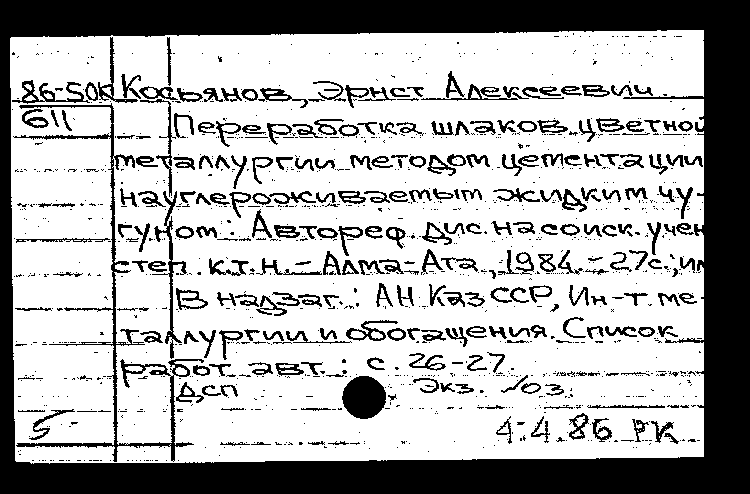 86-50К Косьянов, Эрнст Алексеевич.
611 Переработка шлаков цветной
металлургии методом цементации
науглероживаемым жидким чу-
гуном: Автореф. дис. на соиск. учен
степ. к.т.н. - Алма-Ата, 1984. - 27с.; ил
В надзаг.: АН КазССР, Ин-т ме-
таллургии и обогащения. Список
работ авт.: с. 26-27
ДСП Экз. №03
5 4.4.86 РК